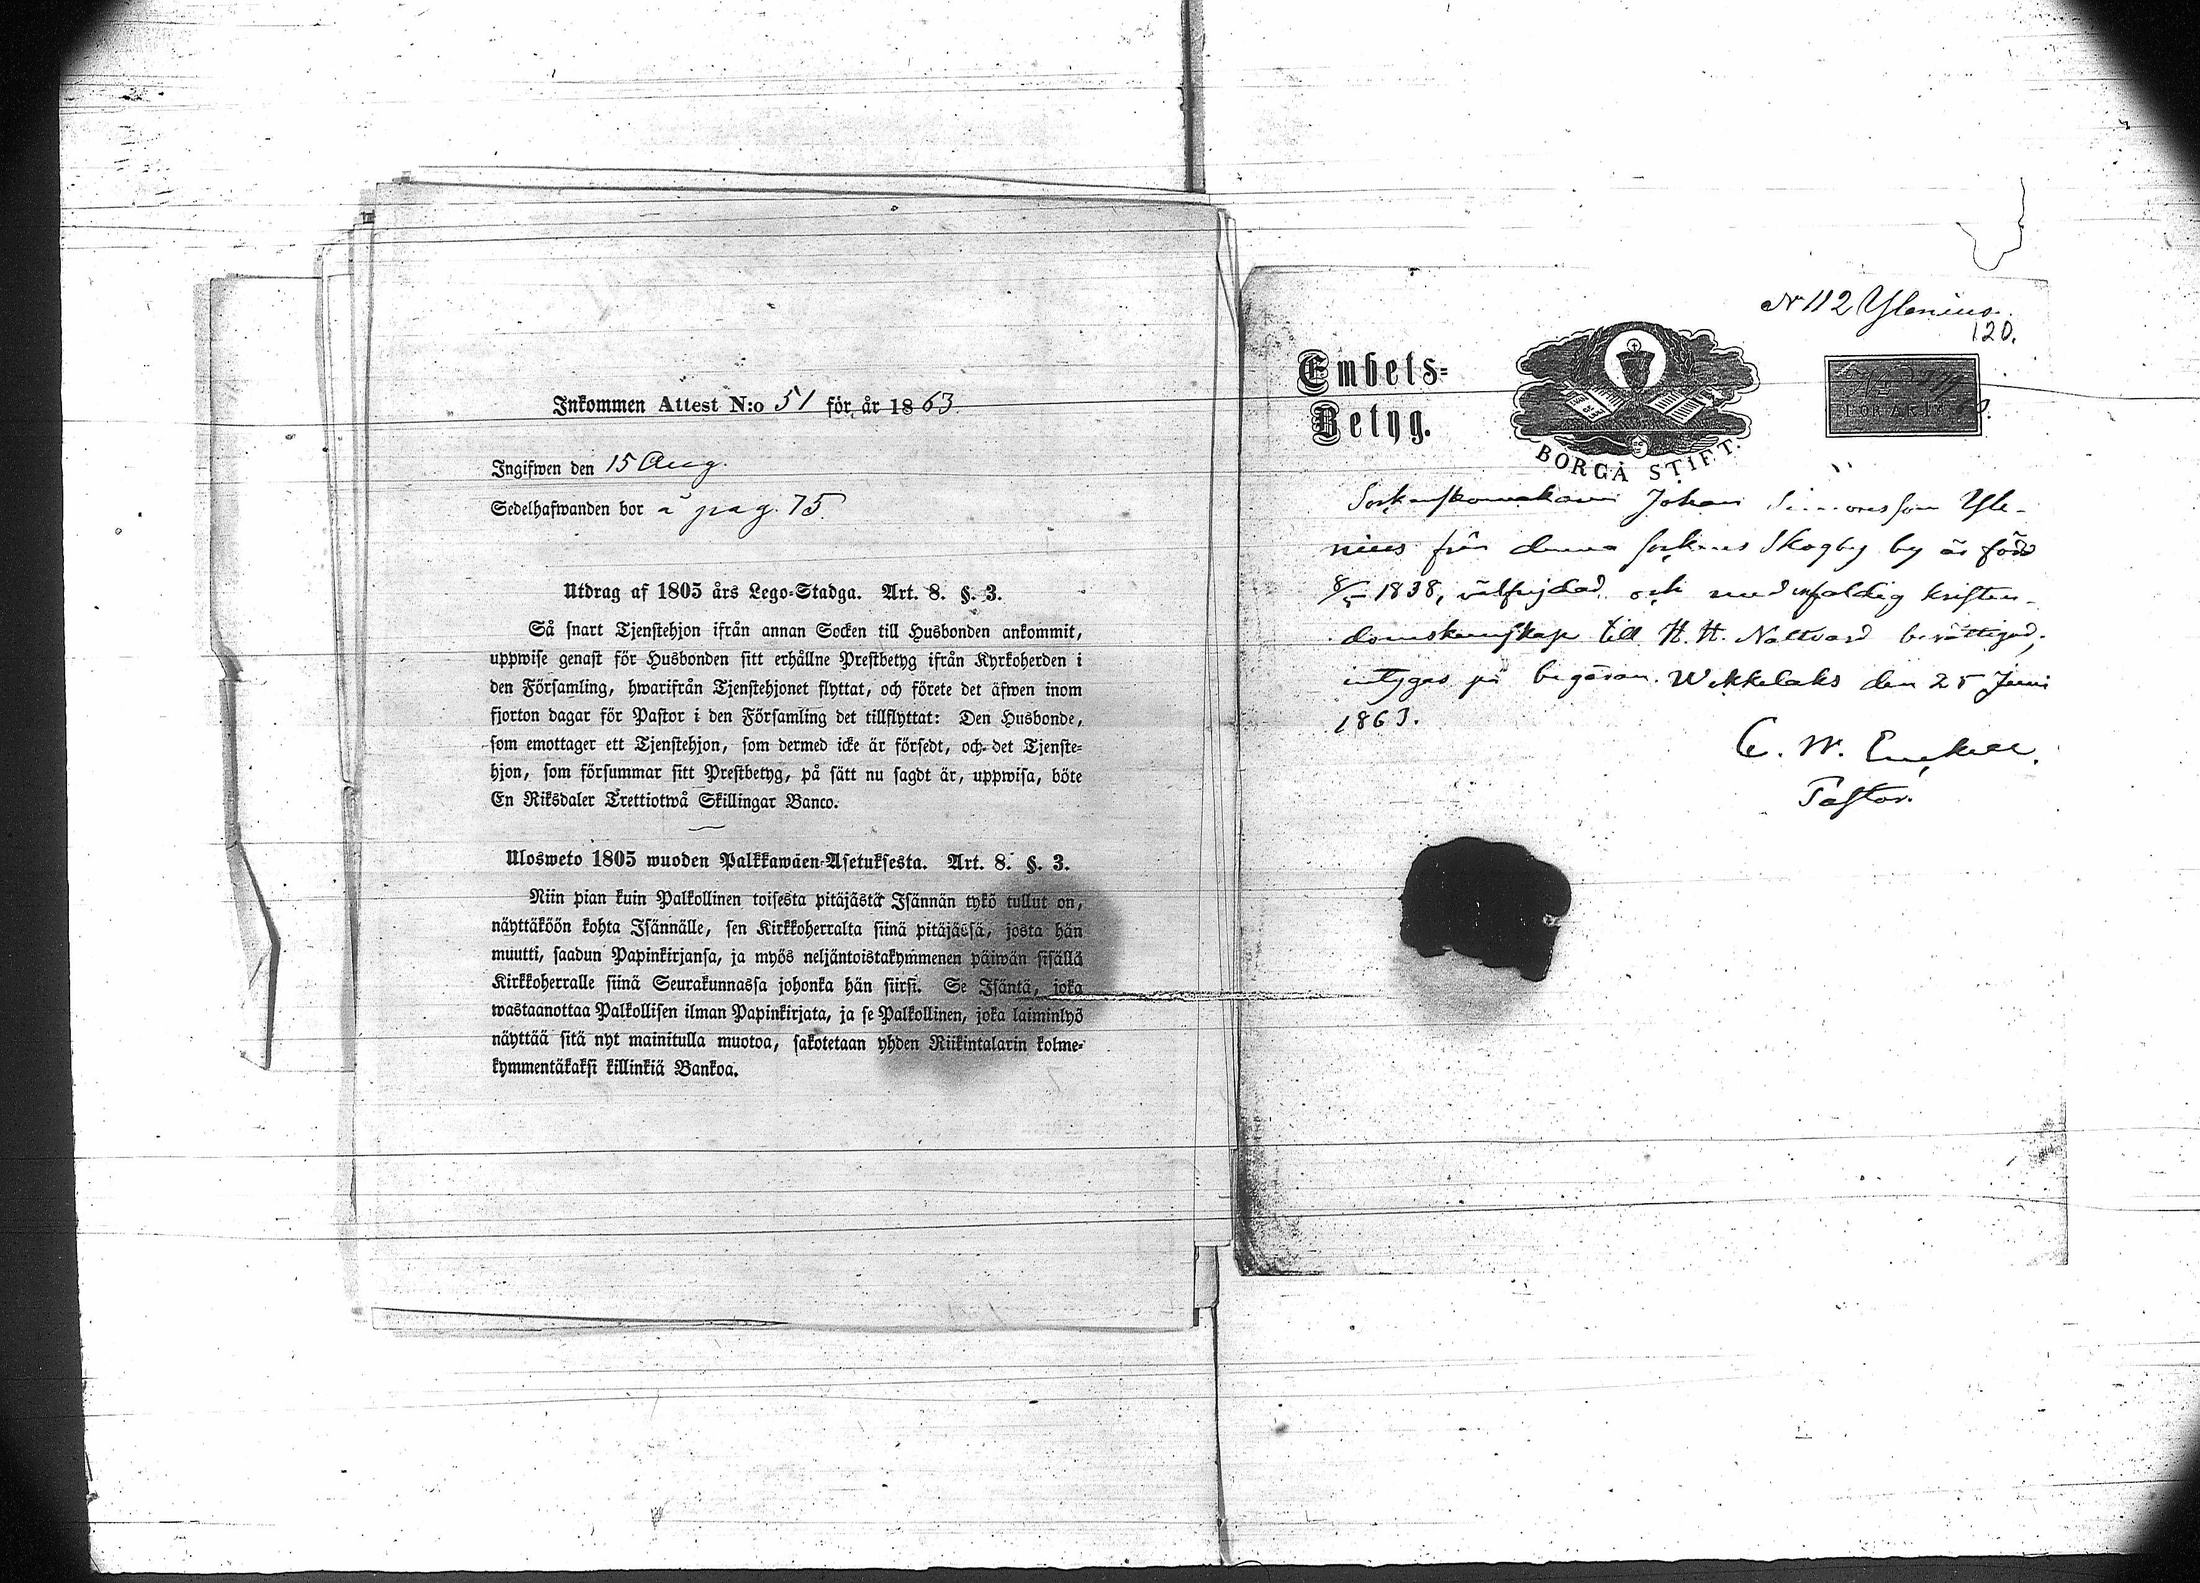 Inkommen Attest N:o 51 för år 1863.
Ingifwen den 15 Aug.
Sedelhafwanden bor å pag. 75.
Utdrag af 1805 års Lego-Stadga. Art. 8. §. 3.
Så snart Tjenstehjon ifrån annan Socken till Husbonden ankommit,
uppwise genast för Husbonden sitt erhållne Prestbetyg ifrån Kyrkoherden i
den Församling, hwarifrån Tjenstehjonet flyttat, och förete det äfwen inom
fjorton dagar för Pastor i den Församling det tillflyttat: Den Husbonde,
som emottager ett Tjenstehjon, som dermed icke är försedt, och det Tjenste-
hjon, som försummar sitt Prestbetyg, på sätt nu sagdt är, uppwisa, böte
En Riksdaler Trettiotwå Skillingar Banco.
Ulosweto 1805 wuoden Palkkawäen-Asetuksesta. Art. 8. §. 3.
Niin pian kuin Palkollinen toisesta pitäjästä Isännän tykö tullut on,
näyttäköön kohta Isännälle, sen Kirkkoherralta siinä pitäjässä, josta hän
muutti, saadun Papinkirjansa, ja myös neljäntoistakymmenen päiwän sisällä
Kirkkoherralle siinä Seurakunnassa johonka hän siirsi. Se Isäntä, joka
wastaanottaa Palkollisen ilman Papinkirjata, ja se Palkollinen, joka laiminlyö
näyttää sitä nyt mainitulla muotoa, sakotetaan yhden Riikintalarin kolme-
kymmentäkaksi killinkiä Bankoa.
N 112 Ylenius.
120.
Embets-
Betyg.
BORGÅ STIFT.
FÖR ÅR 18
Johan Simonsson Yle-
nius från denna sockens Skogby by är född
1838, välfrejdad och med enfaldig kristen-
domskunskap till H. H. Nattvard berättigad,
intygas på begäran. Wekkelaks den 25 Juni
1863.
C. W. Enckell.
Pastor.